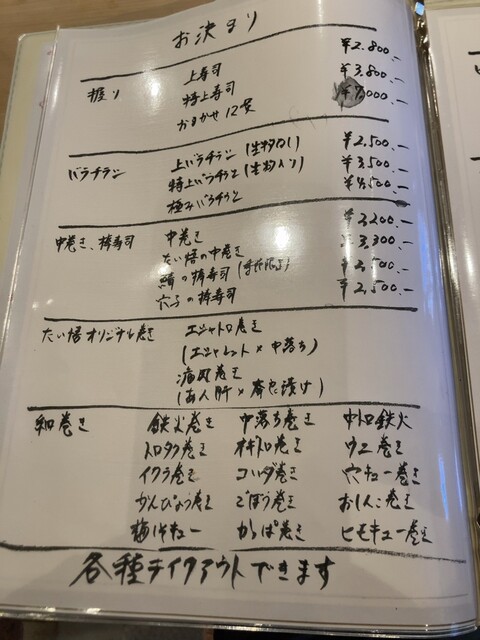 お決まり
握り 上寿司 ¥2.800.-
特上寿司 ¥3.800.-
おまかせ12貫 ¥7,000.-
バラチラシ 上バラチラシ (生物なし) ¥2,500.-
特上バラチラシ (生物入り) ¥3,500.-
極みバラチラシ ¥4,500.-
中巻き、棒寿司 中巻き ¥2,200.-
たい悟の中巻き ¥3,300.-
鯖の棒寿司 ¥2,500.-
穴子の棒寿司 ¥2,500.-
たい悟オリジナル巻き エシャトロ巻き
(エシャレット×中落ち)
痛風巻き
(あん肝×奈良漬け)
細巻き 鉄火巻き 中落ち巻き 中トロ鉄火
トロタク巻き ネギトロ巻き ウニ巻き
イクラ巻き コハダ巻き 穴キュー巻き
かんぴょう巻き ごぼう巻き おしんこ巻き
梅シソキュー かっぱ巻き ヒモキュー巻き
各種テイクアウトできます